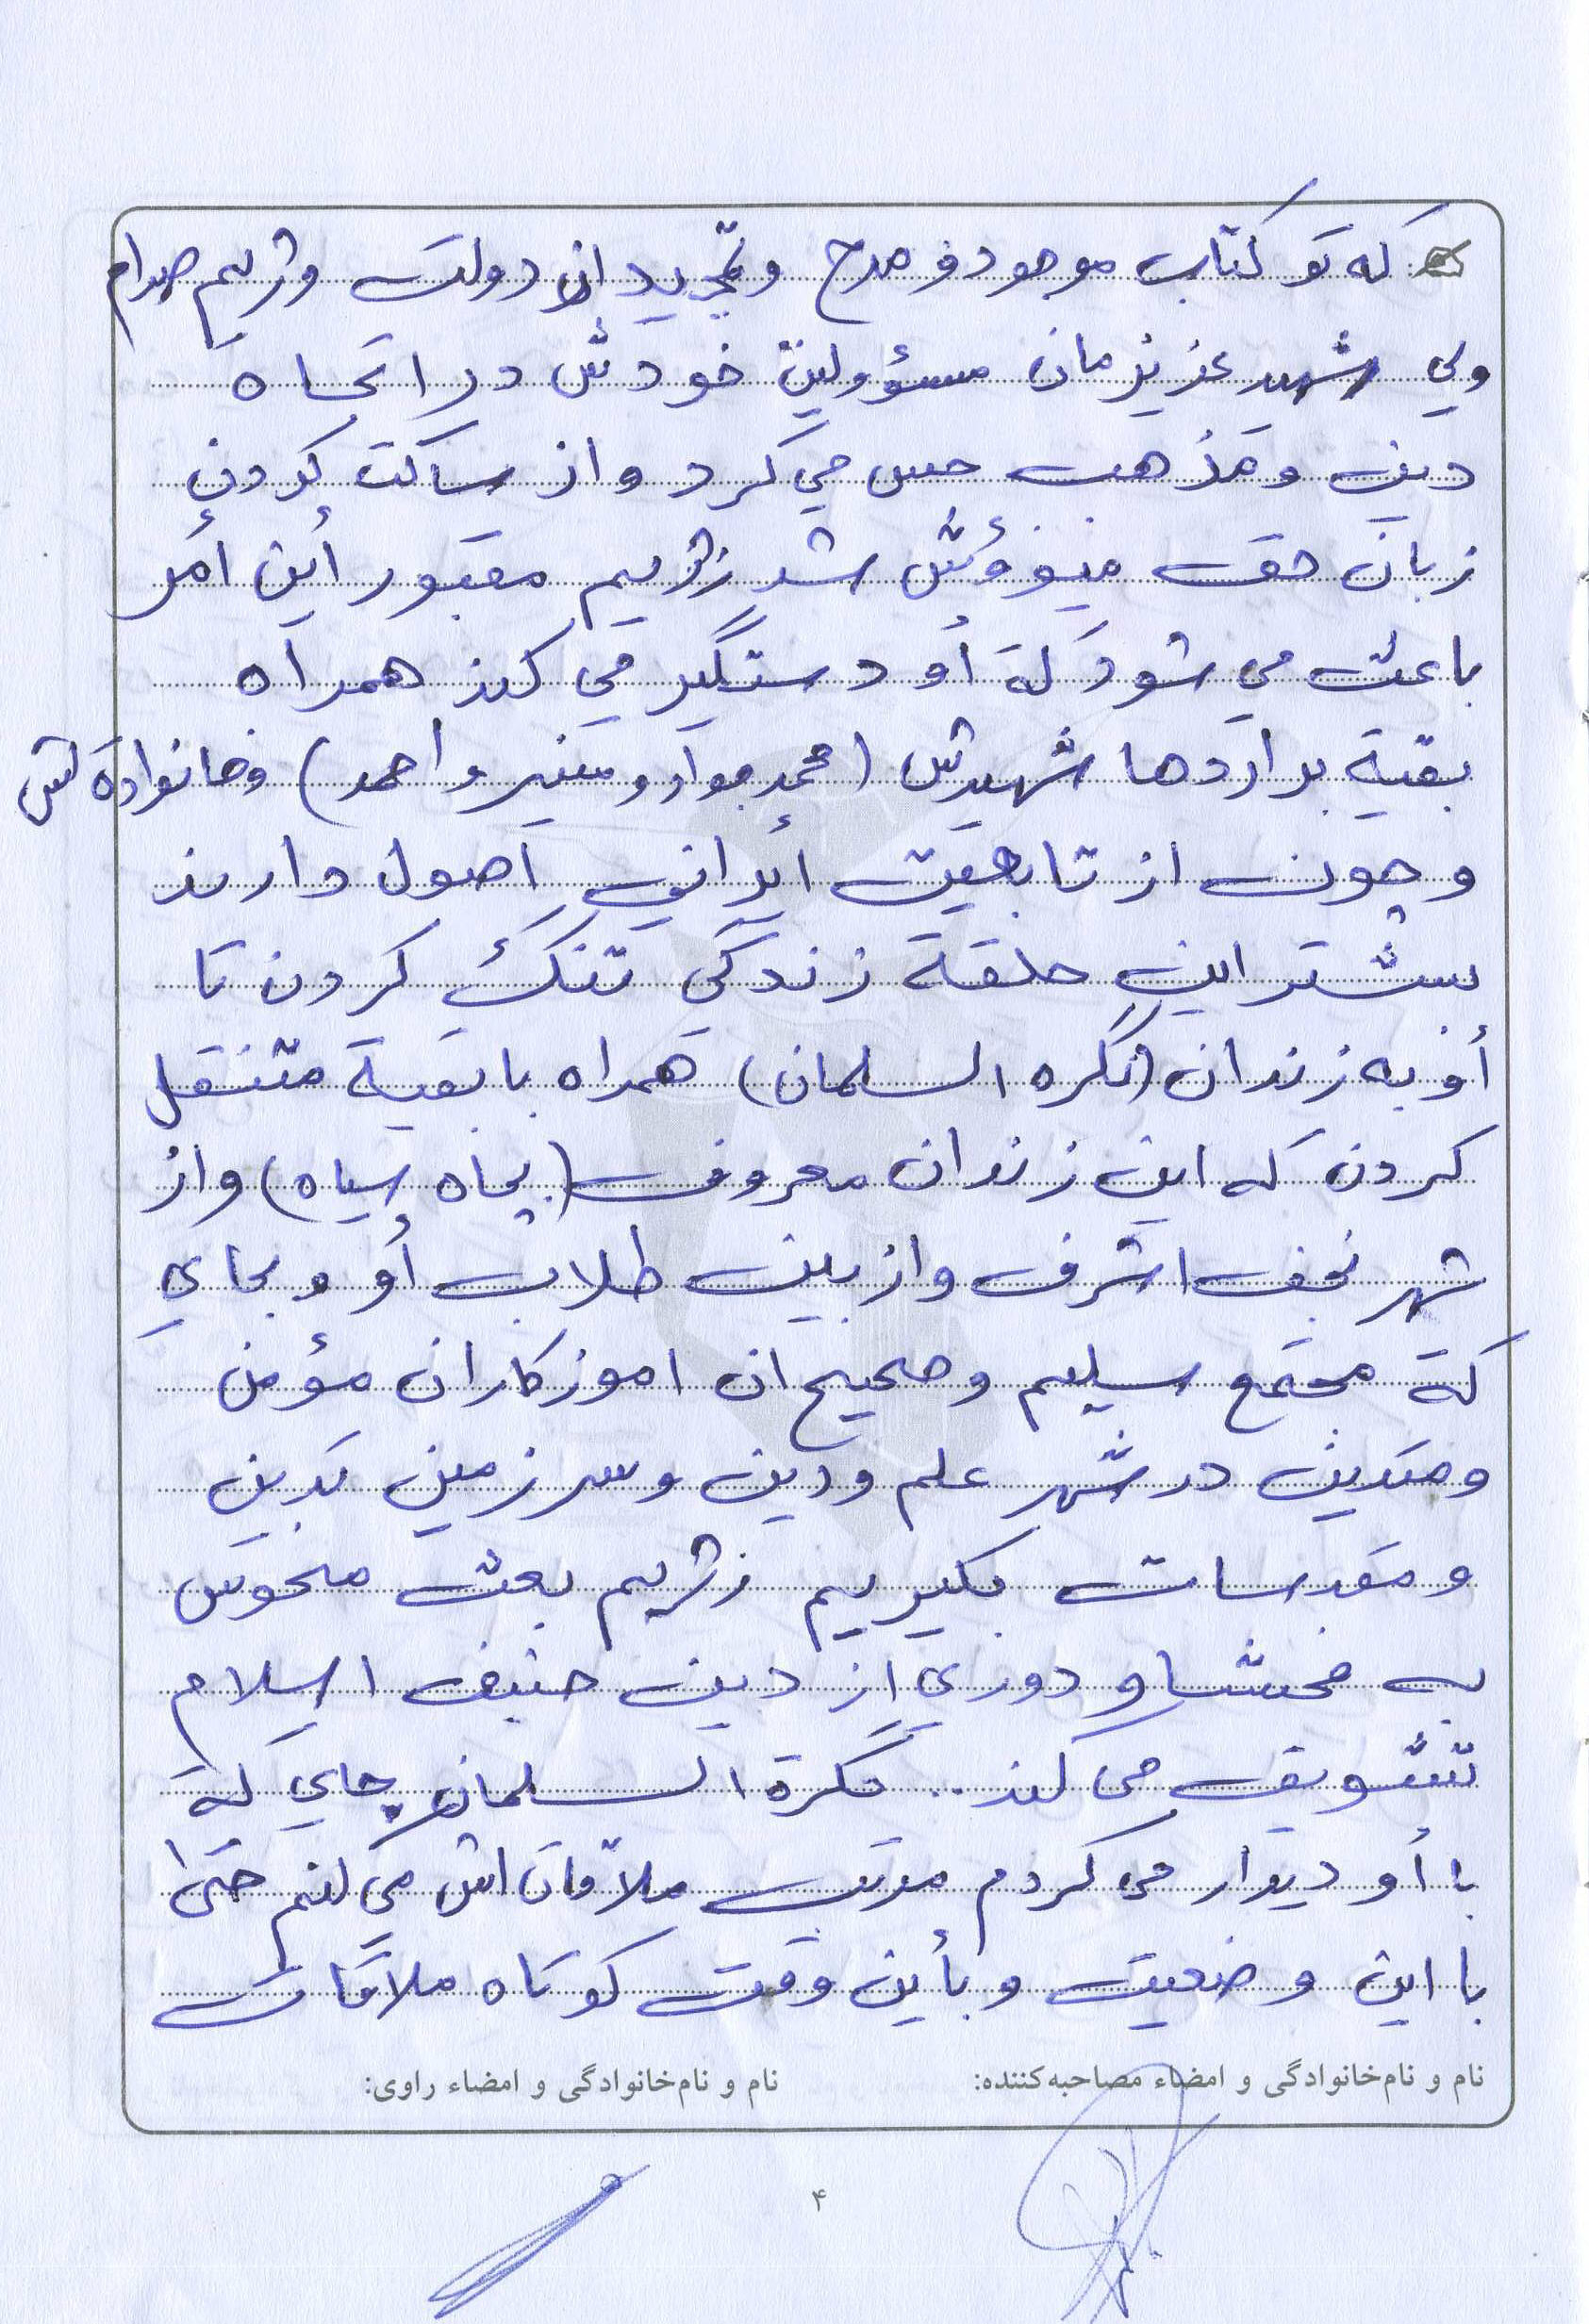 که تو کتاب موجود و مدح و تمجید از دولت و رژیم صدام
ولي شهید عزیزمان مسؤولیت خودش در اتجاه
دین و مذهب حس مي کرد و از ساکت کردن
زبان حق میوؤش شد رژیم مقبور أین أمر
باعث مي شود که أو دستگیر مي کند همراه
بقیة براردها شهیدش (محمد جواد و منیر و احمد) و خانوادة اش
و چون از تابعیت أیراني اصول دارند
بیشتر این حلقة زندگي تنگ کردن تا
أو به زندان (نگره السلمان) همراه با بقیة متنقل
کردن که این زندان معروف (بچاه سیاه) و از
شهر نجف اشرف و از بین طلاب أو و بجاي
کة مجتمع سلیم و صحیح ان اموزکاران مؤمن
و متدین در شهر علم و دین و سرزمین تدین
و مقدسات بگیریم رژیم بعث منحوس
به فحشا و دوري از دین حنیف اسلام
تشویق مي کند .. نگرة السلمان جاي که
با أو دیدار مي کردم مرتب ملاقات اش مي کنم حتی
با این وضعیت و بأین وقت کوتاه ملاقات
نام و نام‌خانوادگی و امضاء مصاحبه‌کننده: نام و نام‌خانوادگی و امضاء راوی:
۴